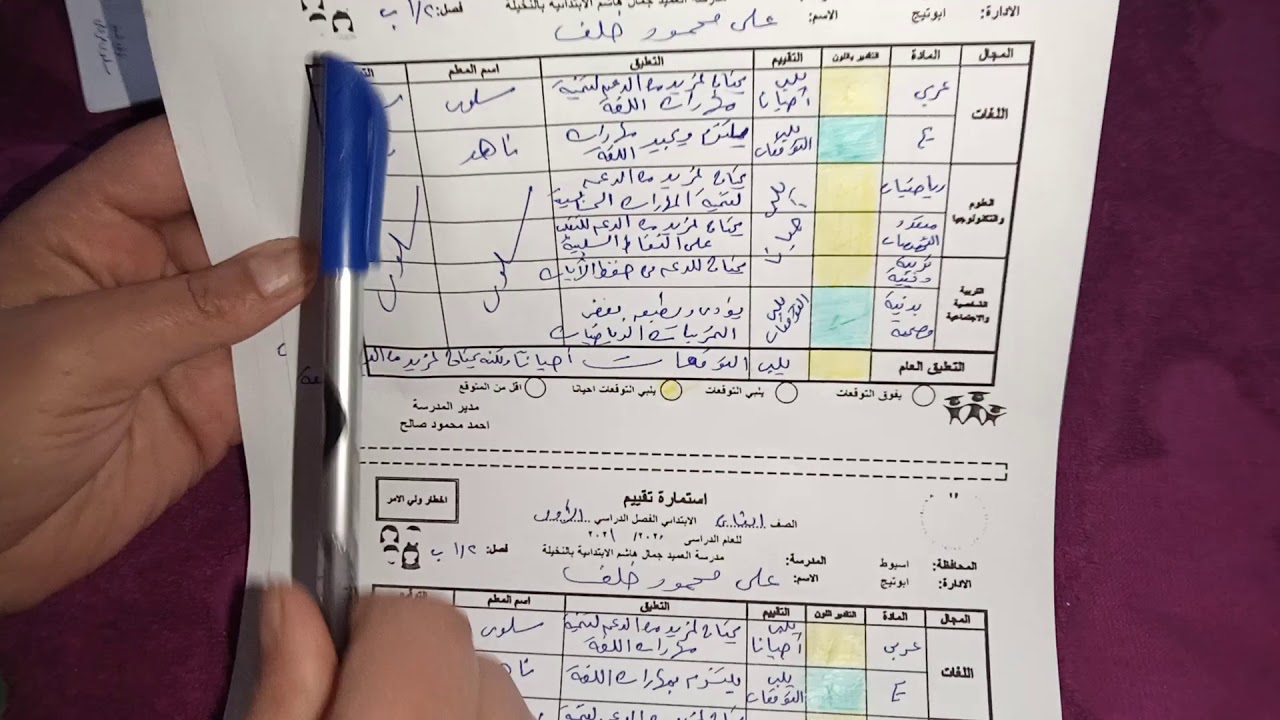 مدرسة العميد جمال هاشم الابتدائية بالنخيلة فصل: ٢/١ ب
الادارة: ابوتيج الاسم: على محمود خلف
المجال المادة التقدير باللون التقييم التعليق اسم المعلم
اللغات
عربى يلبى أحيانا يحتاج لمزيد من الدعم لتنمية مهارات اللغة سلوى
E يلبى التوقعات يلتزم ويجيد مهارات اللغة ناهد
العلوم والتكنولوجيا
رياضيات يلبى يحتاج لمزيد من الدعم لتنمية المهارات
متعدد التخصصات أحيانا يحتاج لمزيد من الدعم على النقاط السلبية سلوى سلوى
التربية الشخصية والاجتماعية
تربية دينية يحتاج للدعم فى حفظ الآيات
بدنية وصحية يلبى التوقعات يؤدى ويطبق بعض التمرينات الرياضيات
التعليق العام يلبى التوقعات أحيانا ولكنه يحتاج لمزيد من
يفوق التوقعات يلبي التوقعات يلبي التوقعات احيانا اقل من المتوقع
مدير المدرسة
احمد محمود صالح
استمارة تقييم
اخطار ولي الامر
الصف الثانى الابتدائي الفصل الدراسي الأول
للعام الدراسى ٢٠٢٠/ ٢٠٢١
المحافظة: اسيوط المدرسة: مدرسة العميد جمال هاشم الابتدائية بالنخيلة فصل: ٢/١ ب
الادارة: ابوتيج الاسم: على محمود خلف
المجال المادة التقدير باللون التقييم التعليق اسم المعلم
اللغات
عربى يلبى أحيانا يحتاج لمزيد من الدعم لتنمية مهارات اللغة سلوى
E يلبى التوقعات يلتزم بمهارات اللغة
يحتاج لمزيد من الدعم لتنمية